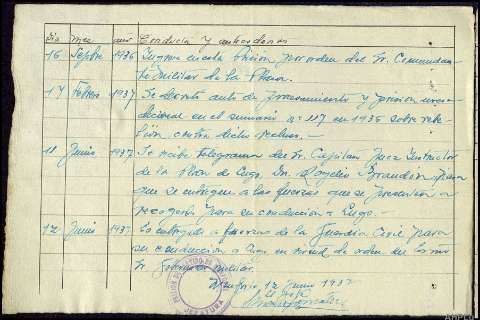 Dia Mes año Conducta y antecedentes
16 Septbre 1936 Ingresa en esta Prisión por orden del Sr. Comandan
te Militar de la Plaza.
17 Febrero 1937 Se decreta auto de procesamiento y prision
en el sumario nº 117 en 1936 sobre rebe
lion, contra dicho recluso.—
11 Junio 1937 Se recibe telegrama del Sr. Capitan Juez Instructor
de la Plaza de Lugo, Dn. Rogelio para
que se entreguen a las fuerzas que se presentaran a
recogerlo para su conduccion a Lugo.—
12 Junio 1937 Es entregado a fuerzas de la Guardia Civil para
su conduccion a Lugo, en virtud de orden del
Sr. Gobernador militar.
Monforte 12 Junio 1937
El Jefe